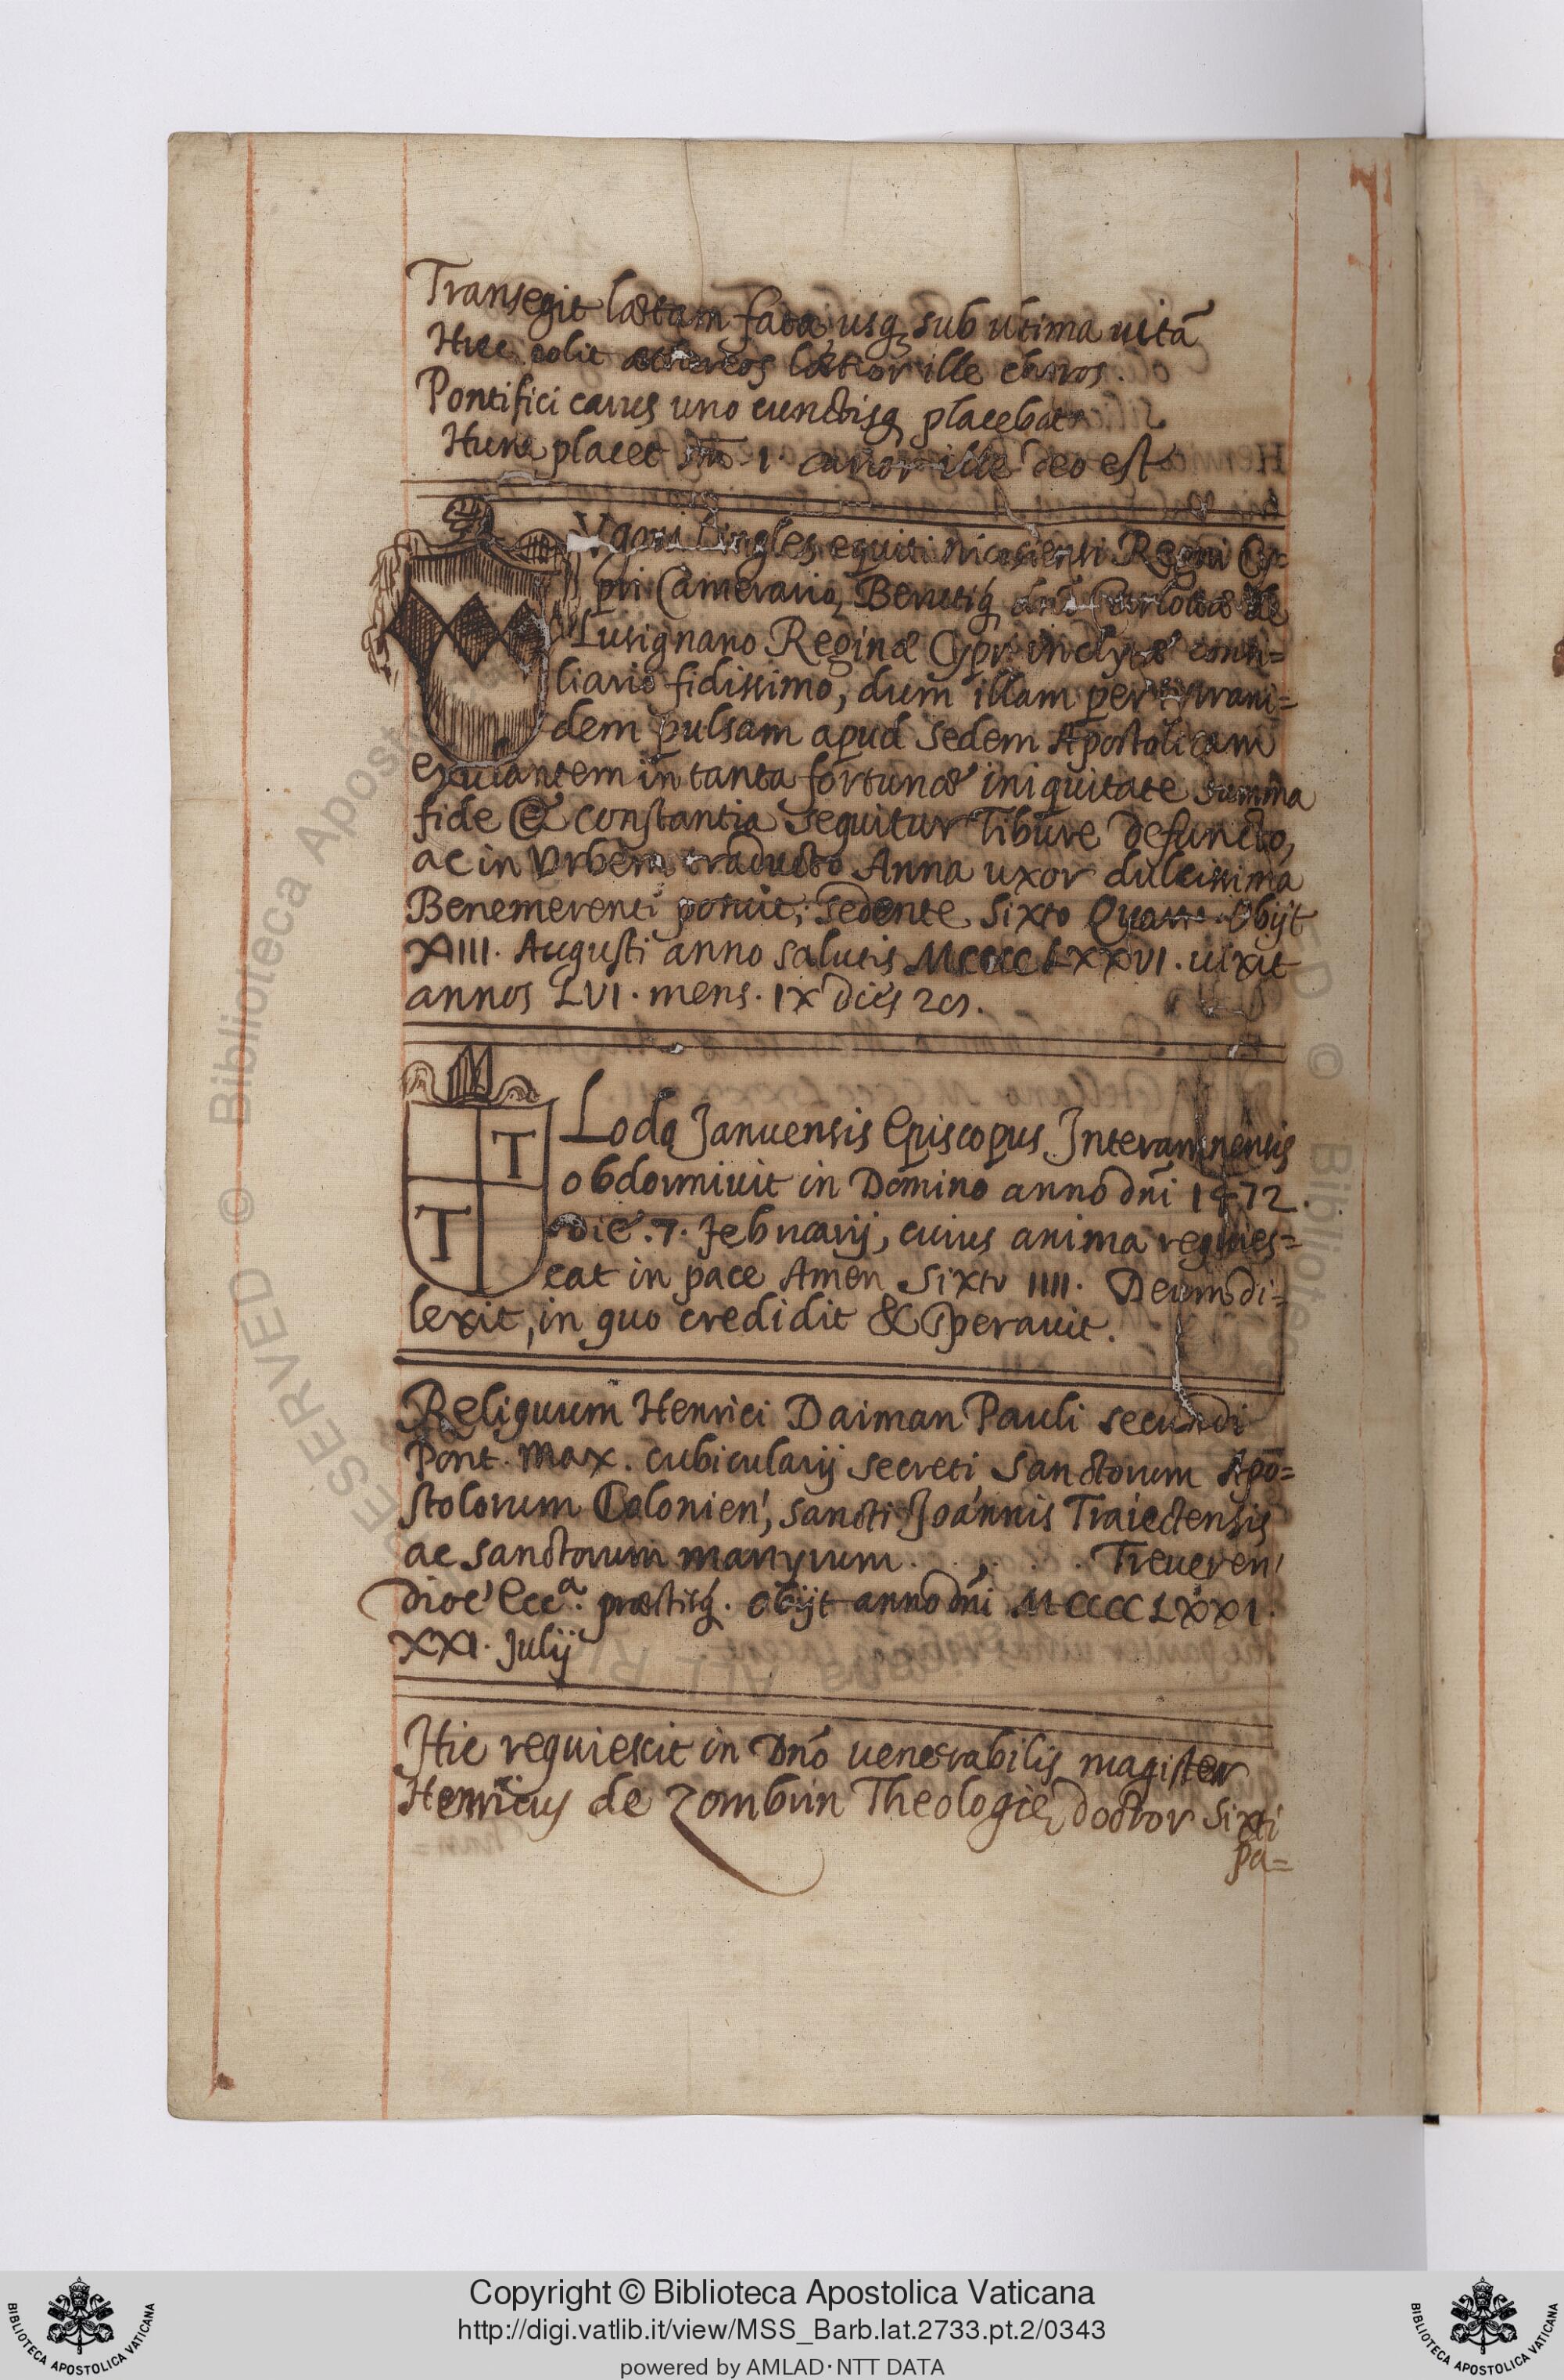 Transegit lætam fata; usq₃ sub ultima uitã
Hucc colit æthereos lætior ille choros.
Pontifici carus uno cunctisq₃ placebat
Hunc placet 1. carior ille deo est
Vgoni Lingles equiti nicosiensi Regni Cy-
pri Camerario, Benetiq₃ Carlottæ de
Lusignano Reginæ Cypri inclytæ consi=
liario fidissimo, dum illam per tyrani=
dem pulsam apud Sedem Apostolicam
exulantem in tanta fortunæ iniquitate summa
fide & constantia sequitur Tibure defuncto,
ac in Vrbem traducto Anna uxor dulcissima
Benemerenti posuit; sedente Sixto Quarto. Obijt
XIIII. Augusti anno salutis MCCCC LXXVI. uixit
annos LVI. mens. IX dies
T
T
Loda Januensis Episcopus Interamnensis
obdormiuit in Domino anno dñi 1472.
Die .7. Februarij, cuius anima requies=
cat in pace Amen Sixtu IIII. Deum di=
lexit, in quo credidit & speravit.
Reliquum Henrici Daiman Pauli secundi
Pont. Max. cubicularij secreti Sanctorum Apo=
stolorum Colonien', Sancti Joannis Traiectensis
ac sanctorum martyrum . . , . . Treueren'
dioc' Ecc.ª præstisq₃. obijt anno dñi MCCCC LXXI.
XXI. Julij
Hic requiescit in Dnõ uenerabilis magister
Henricus de Zombun Theologie doctor Sixti
pa=
Copyright © Biblioteca Apostolica Vaticana
http://digi.vatlib.it/view/MSS_Barb.lat.2733.pt.2/0343
powered by AMLAD·NTT DATA
BIBLIOTECA APOSTOLICA VATICANA
BIBLIOTECA APOSTOLICA VATICANA